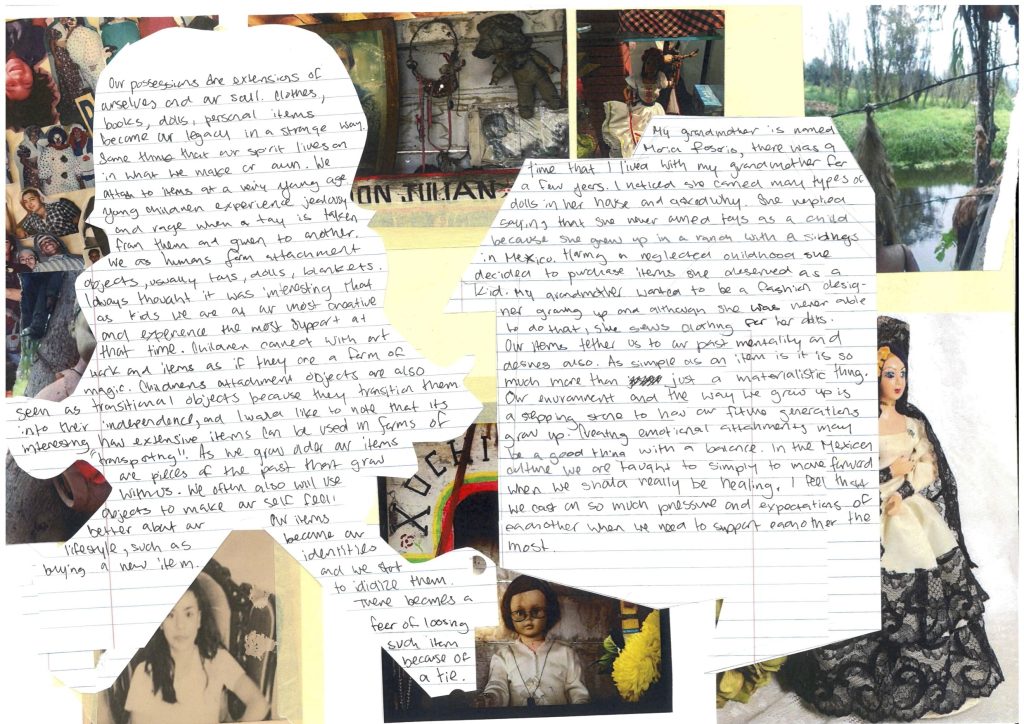 Our possessions are extensions of
ourselves and our soul. Clothes,
books, dolls, personal items
become our legacy in a strange way.
Some think that our spirit lives on
in what we make or own. We
attach to items at a very young age
young children experience jealousy
and rage when a toy is taken
from them and given to another.
We as humans form attachment
objects, usually toys, dolls, blankets.
I always thought it was interesting that
as kids we are at our most creative
and experience the most support at
that time. Children connect with art
work and items as if they are a form of
magic. Childrens attachment objects are also
seen as transitional objects because they transition them
into their independence, and I would like to note that its
interesting how extensive items can be used in forms of
"transporting". As we grow older our items
are pieces of the past that grow
with us. We often also will use
objects to make our self feel
better about our
lifestyle, such as
buying a new item.
Our items
become our
identities
and we start
to idolize them.
There becomes a
fear of loosing
such item
because of
a tie.
My grandmother is named
Maria Rosario, there was a
time that I lived with my grandmother for
a few years. I noticed she carried many types of
dolls in her house and asked why. She replied
saying that she never owned toys as a child
because she grew up in a ranch with 8 siblings
in Mexico. Having a neglected childhood she
decided to purchase items she deserved as a
kid. My grandmother wanted to be a fashion desig-
ner growing up and although she was never able
to do that, she sews clothing for her dolls.
Our items tether us to our past mentality and
desires also. As simple as an item is it is so
much more than just a materialistic thing.
Our environment and the way we grew up is
a stepping stone to how our future generations
grow up. Creating emotional attachments may
be a good thing with a balance. In the Mexican
culture we are taught to simply to move forward
when we should really be healing. I feel that
we cast on so much pressure and expectations of
eachother when we need to support eachother the
most.
ON JULIAN
XOCHI